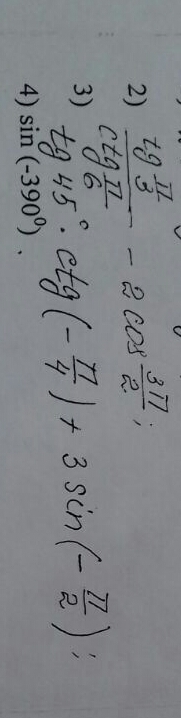 2) tg π/3 / ctg π/6 - 2 cos 3π/2 ;
3) tg 45° · ctg (- π/4) + 3 sin (- π/2) ;
4) sin (-390⁰).